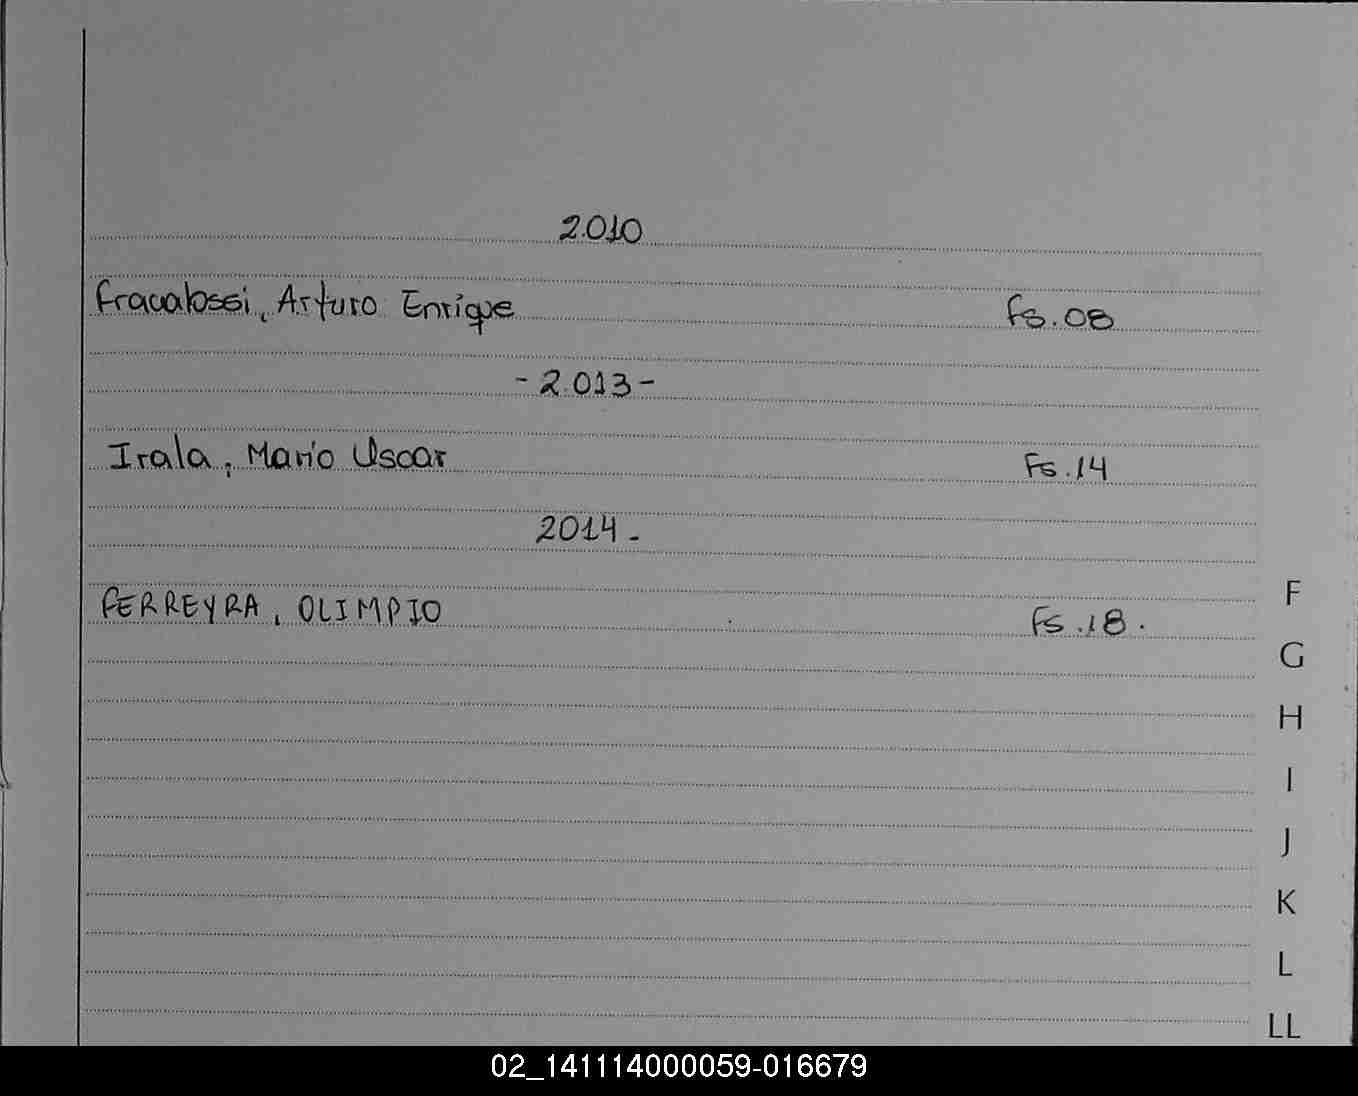 2.010
Fracalossi, Arturo Enrique Fs.08
-2.013-
Irala, Mario Oscar Fs.14
2014-
FERREYRA, OLIMPIO Fs.18.
F
G
H
I
J
K
L
LL
02_141114000059-016679